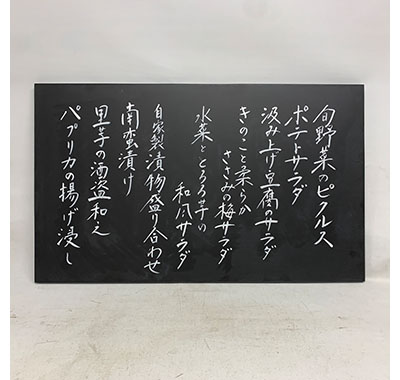 旬野菜のピクルス
ポテトサラダ
汲み上げ豆腐のサラダ
きのこと柔らか
ささみの梅サラダ
水菜ととろろ芋の
和風サラダ
自家製漬物盛り合わせ
南蛮漬け
里芋の酒盗和え
パプリカの揚げ浸し